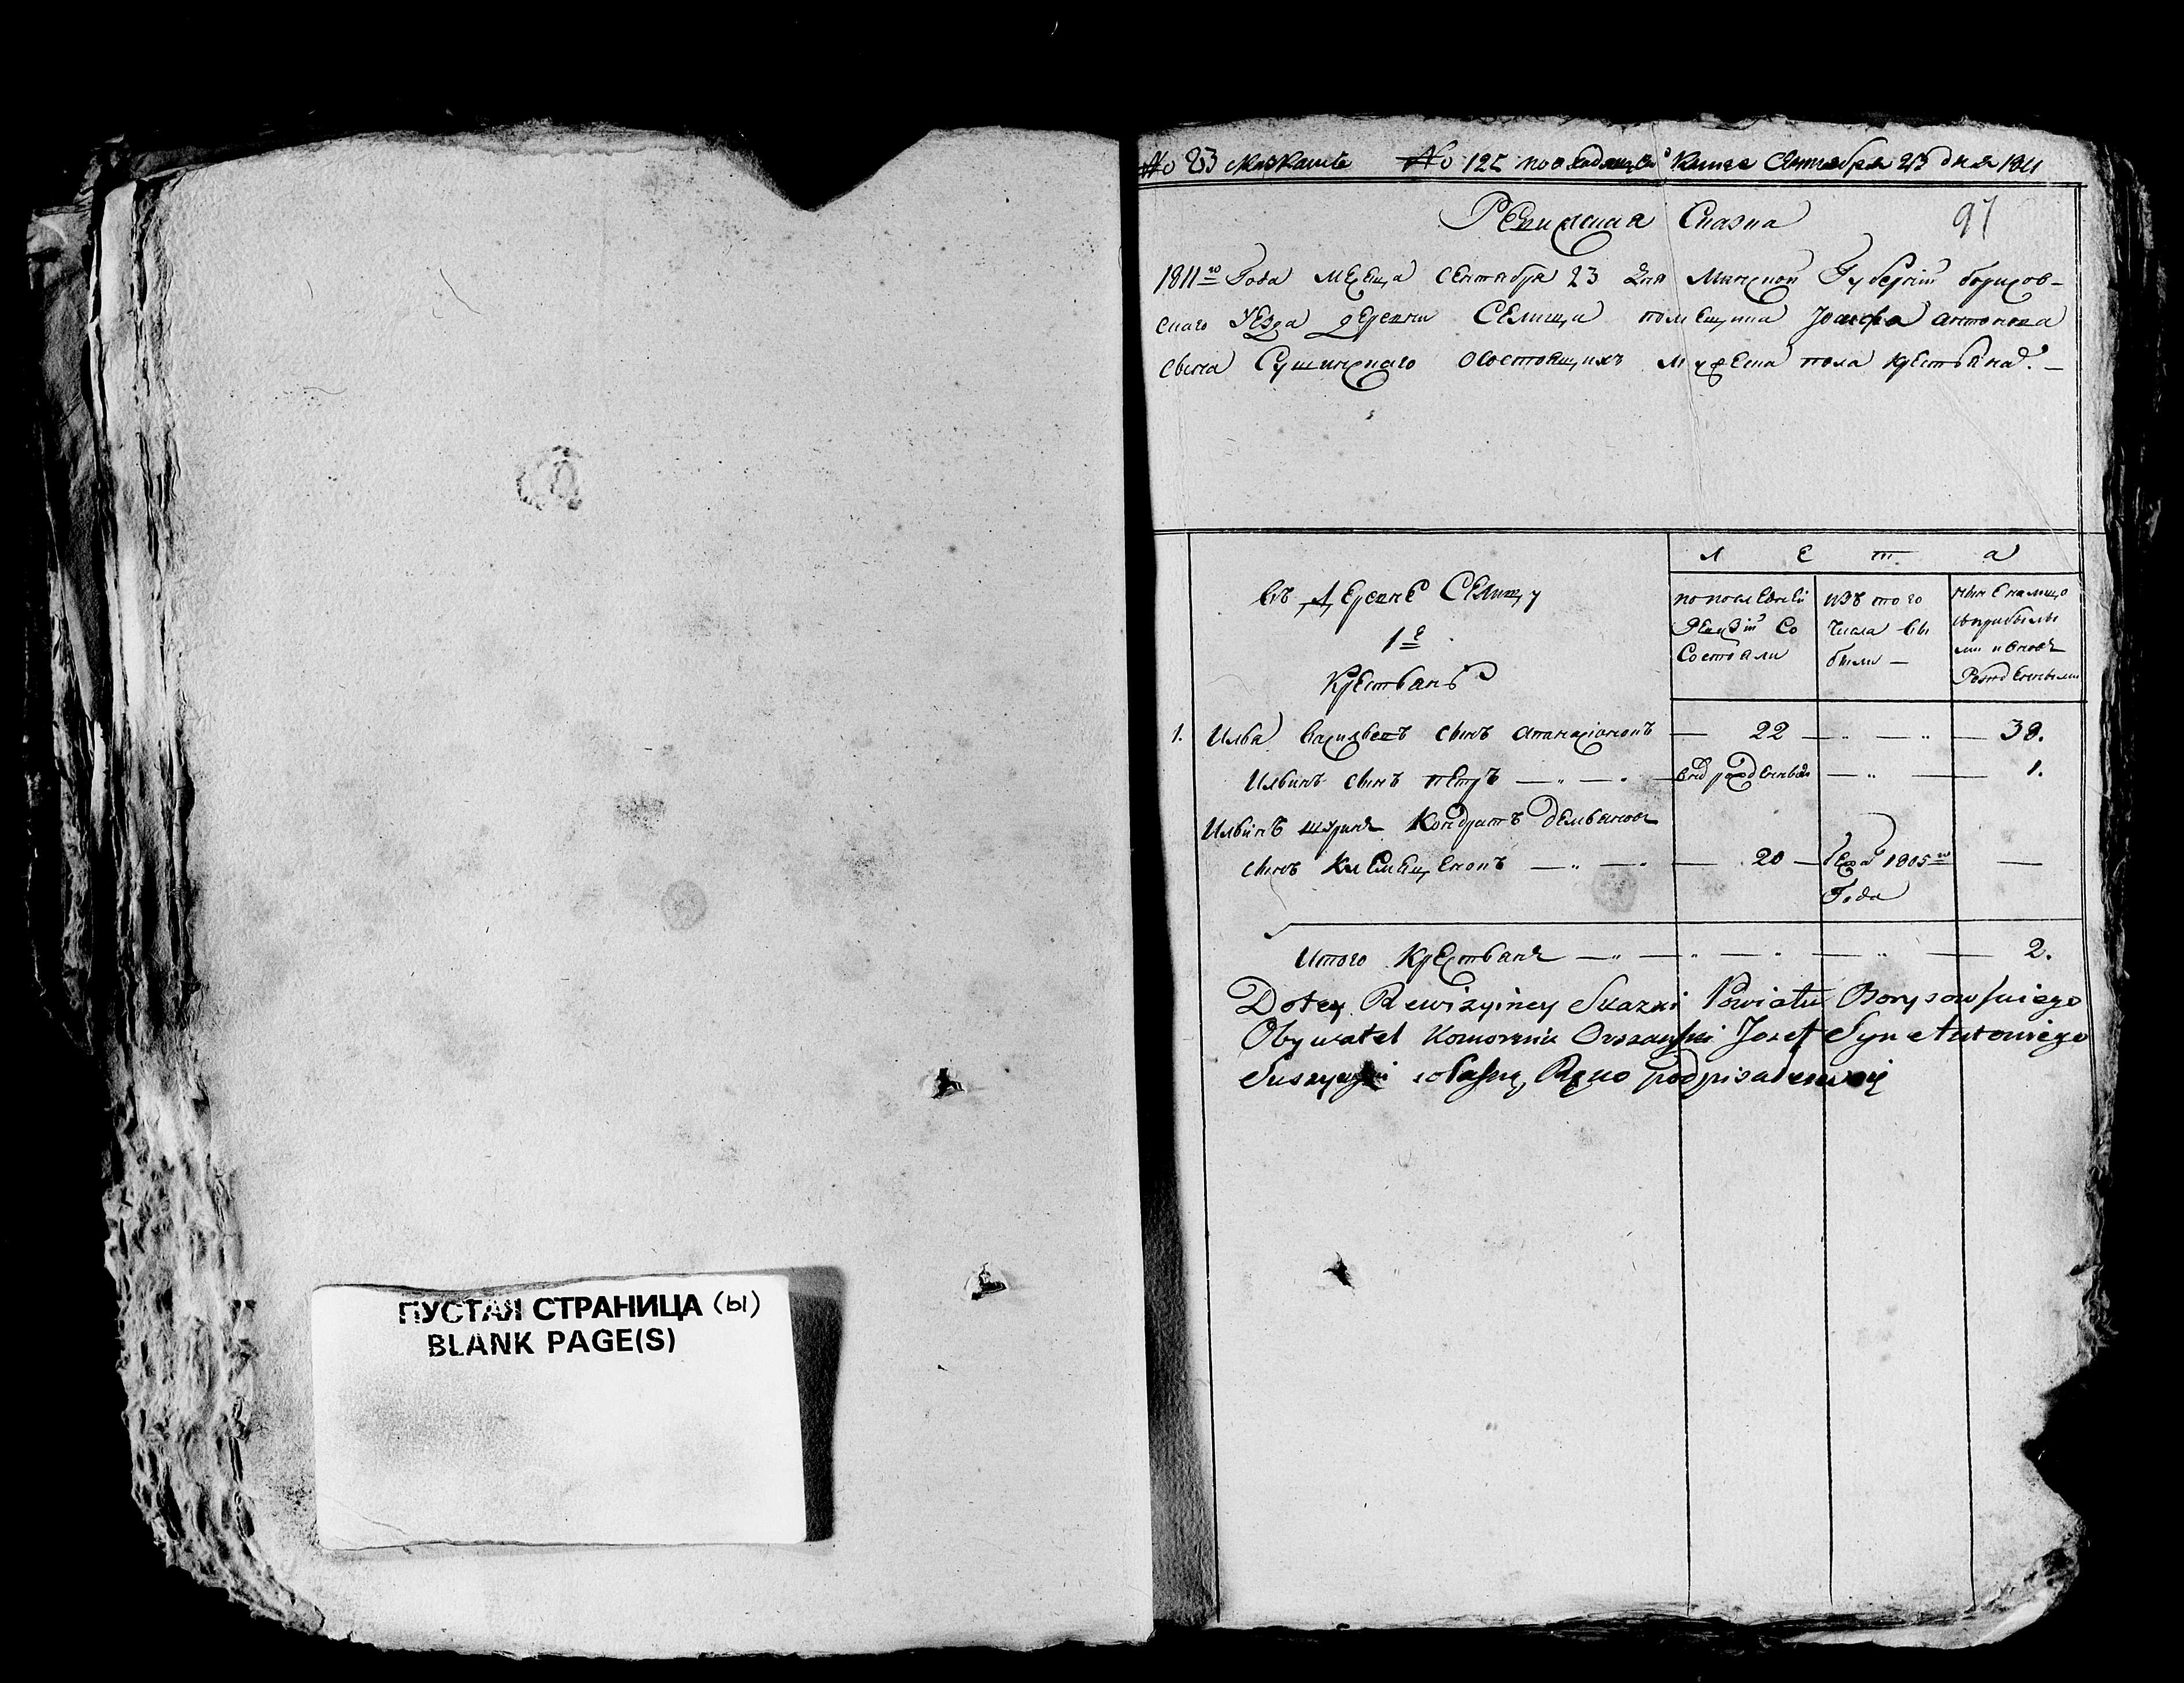 ПУСТАЯ СТРАНИЦА (ы)
BLANK PAGE(S)
№ 23 № 125 по входящей Книге Сентября 23 дня 1811
Ревижская Сказка 97
1811го Года месеца сентября 23 дня Минской Губернiи борисов-
скаго уезда деревни Селища помещика Iосифа антонова
сына Сушинскаго осостоящихъ мужеска пола крестьяна. —
Л е т а
въ деревне Селищу
1е
Крестьянъ
по последней Ревизiи Со Состояли
изъ того числа выбыли —
ныне налицо
1. Илья васильевъ сынъ атанасiоновъ — 22 — „ — „ — 38.
Ильинъ сынъ петръ — „ — „ — — „ — 1.
Ильинъ шуринъ Кондратъ демьяновъ
сынъ Клемещеновъ — „ — „ — 20 — бежа 1805го Года —
Итого Крестьянъ — „ — „ — „ — „ — 2.
Dotey Rewizyiney Skazki Powiatu Borysowskiego
Obywatel Komornik Orszanski Jozef Syn Antoniego
Suszynski własną Ręko podpisałem się